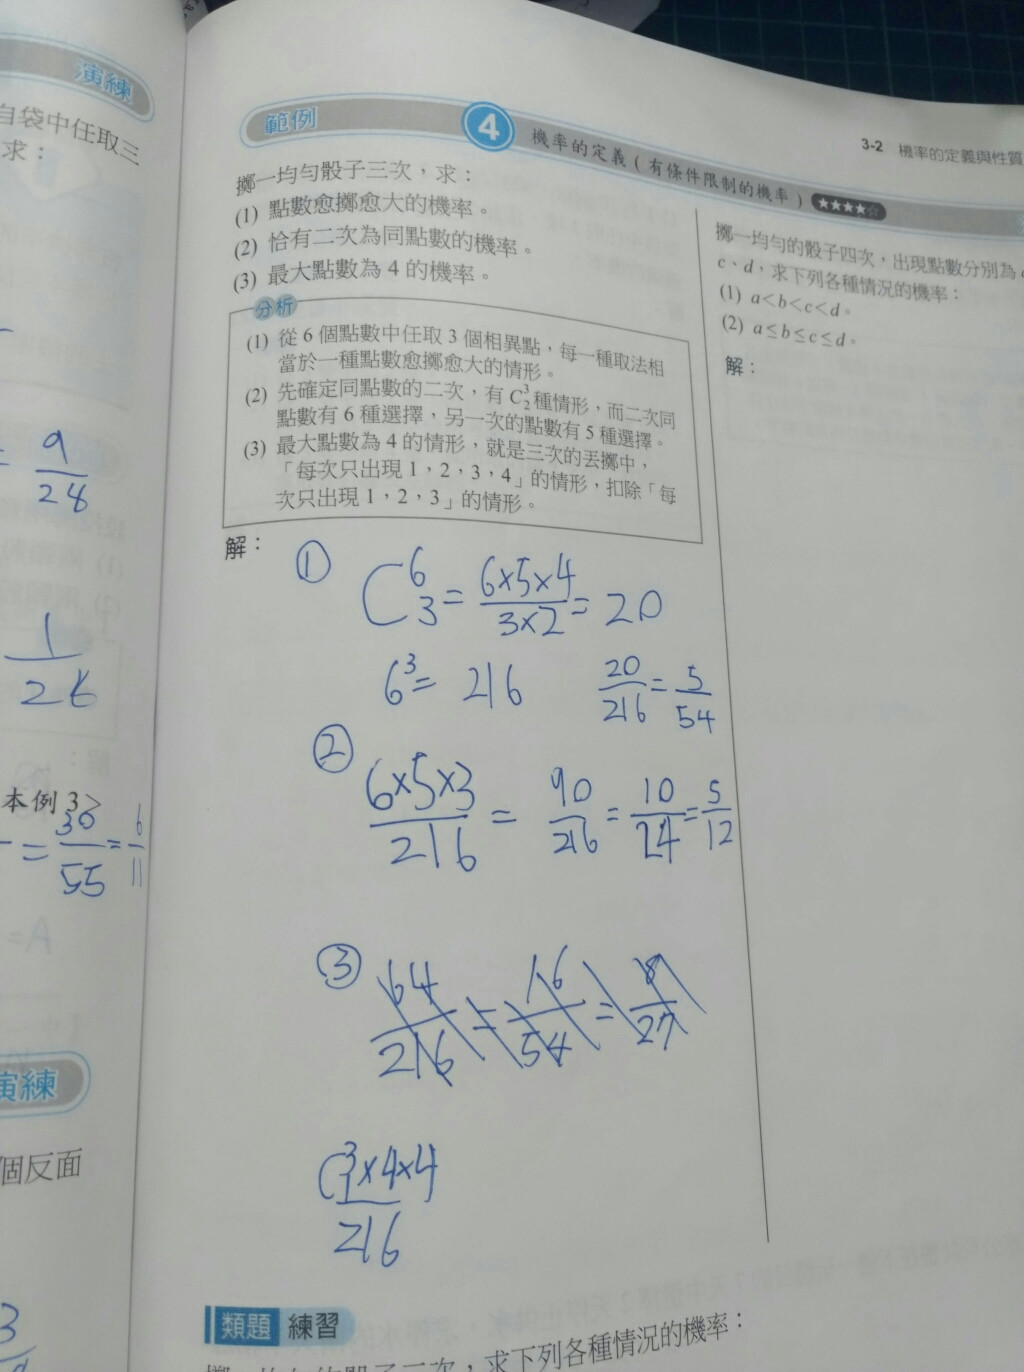 演練
自袋中任取三
求：
= 9/28
1/26
本例3>
= 30/55 = 6/11
演練
個反面
3-2 機率的定義與性質
範例 4 機率的定義(有條件限制的機率) ★★★★☆
擲一均勻骰子三次，求：
(1) 點數愈擲愈大的機率。
(2) 恰有二次為同點數的機率。
(3) 最大點數為 4 的機率。
分析
(1) 從 6 個點數中任取 3 個相異點，每一種取法相
當於一種點數愈擲愈大的情形。
(2) 先確定同點數的二次，有 C³₂ 種情形，而二次同
點數有 6 種選擇，另一次的點數有 5 種選擇。
(3) 最大點數為 4 的情形，就是三次的丟擲中，
「每次只出現 1，2，3，4」的情形，扣除「每
次只出現 1，2，3」的情形。
解：
① C⁶₃ = 6×5×4/3×2 = 20
6³ = 216 20/216 = 5/54
② 6×5×3/216 = 90/216 = 10/24 = 5/12
③ 64/216 = 16/54 = 8/27
C³₁×4×4/216
類題 練習
擲一均勻的骰子三次，求下列各種情況的機率：
擲一均勻的骰子四次，出現點數分別為
c、d，求下列各種情況的機率：
(1) a<b<c<d。
(2) a≤b≤c≤d。
解：